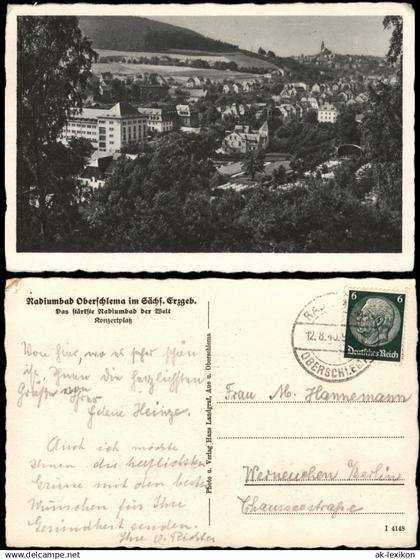 Radiumbad Oberschlema im Sächs. Erzgeb.
Das stärkste Radiumbad der Welt
Konzertplatz
Von hier, wo es sehr schön
ist, Ihnen die herzlichsten
Grüße von
Ihrer
Helene Heinze.
Auch ich möchte
Ihnen die herzlichsten
Grüsse mit den besten
Wünschen für Ihre
Gesundheit senden.
Ihre v. Richter
Photo u. Verlag Hans Landgraf, Aue u. Oberschlema
12.8.40
OBERSCHLEMA
6 6
Deutsches Reich
Frau M. Hannemann
Werneuchen Berlin
Chausseestraße
I 4148
© ak-lexikon.com